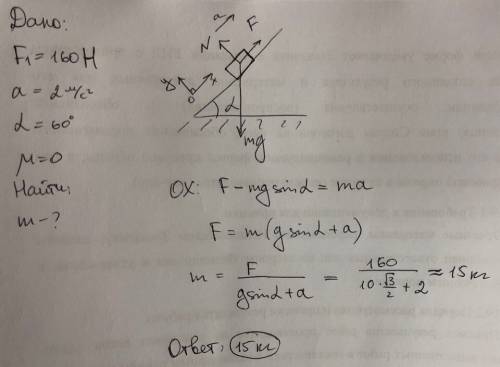 Дано:
F₁ = 160 Н
a = 2 м/с²
α = 60°
μ = 0
Найти:
m - ?
a
N
F
y
x
0
α
mg
OX: F - mg sinα = ma
F = m(g sinα + a)
m = F / (g sinα + a) = 160 / (10 · √3/2 + 2) ≈ 15 кг
Ответ: 15 кг